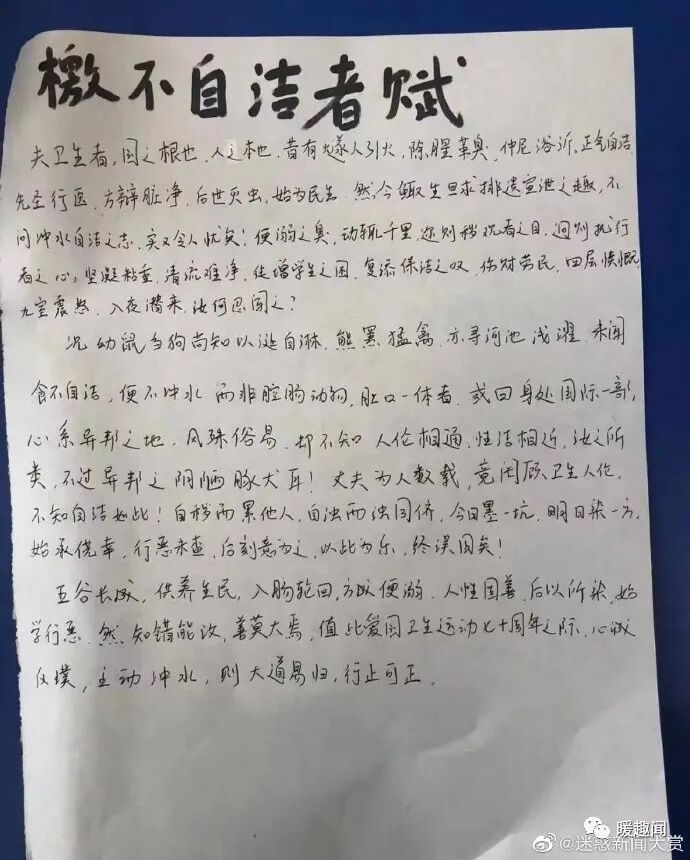 檄不自洁者赋
夫卫生者,国之根也,人之本也,昔有燧人引火,除腥革臭,仲尼浴沂,正气自洁
先圣行医,方辩脏净,后世灭虫,始为民生,然今鲰生只求排遗宣泄之趣,不
问冲水自洁之志,实又令人忧矣!便溺之臭,动辄千里,近则秽观者之目,迥则扰行
者之心,坚凝粘重,清流难净,徒增学生之困,复添保洁之叹,伤财劳民,四层愤慨,
九室震怒,入夜潜来,汝何忍闻之?
况幼鼠刍狗尚知以涎自淋,熊罴猛禽,亦寻河池浅濯,未闻
食不自洁,便不冲水而非腔肠动物,肛口一体者,或曰身处国际一部,
心系异邦之地,风殊俗易,却不知人伦相通,性洁相近,汝之所
类,不过异邦之阴陋豚犬耳!丈夫为人数载,竟罔顾卫生人伦,
不知自洁如此!自秽而累他人,自浊而浊同侪,今日墨一坑,明日染一方,
始承侥幸,行恶未查,后刻意为之,以此为乐,终误国矣!
五谷长成,供养生民,入肠轮回,方成便溺,人性固善,后以所染,始
学行恶,然,知错能改,善莫大焉,值此爱国卫生运动七十周年之际,心诚
仪璞,主动冲水,则大道易归,行止可正。
暖趣闻
@迷惑新闻大赏